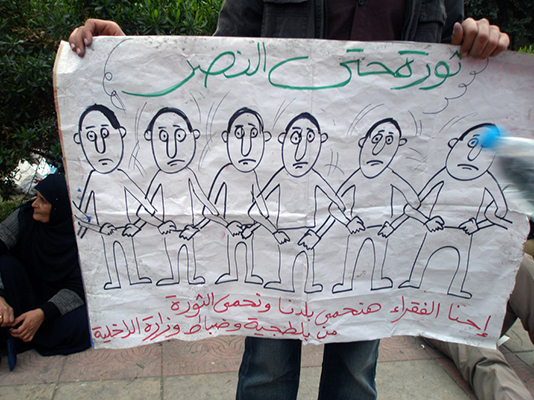 ثورة حتى النصر
إحنا الفقراء هنحمى بلدنا ونحمى الثورة
من بلطجية وضباط وزارة الداخلية